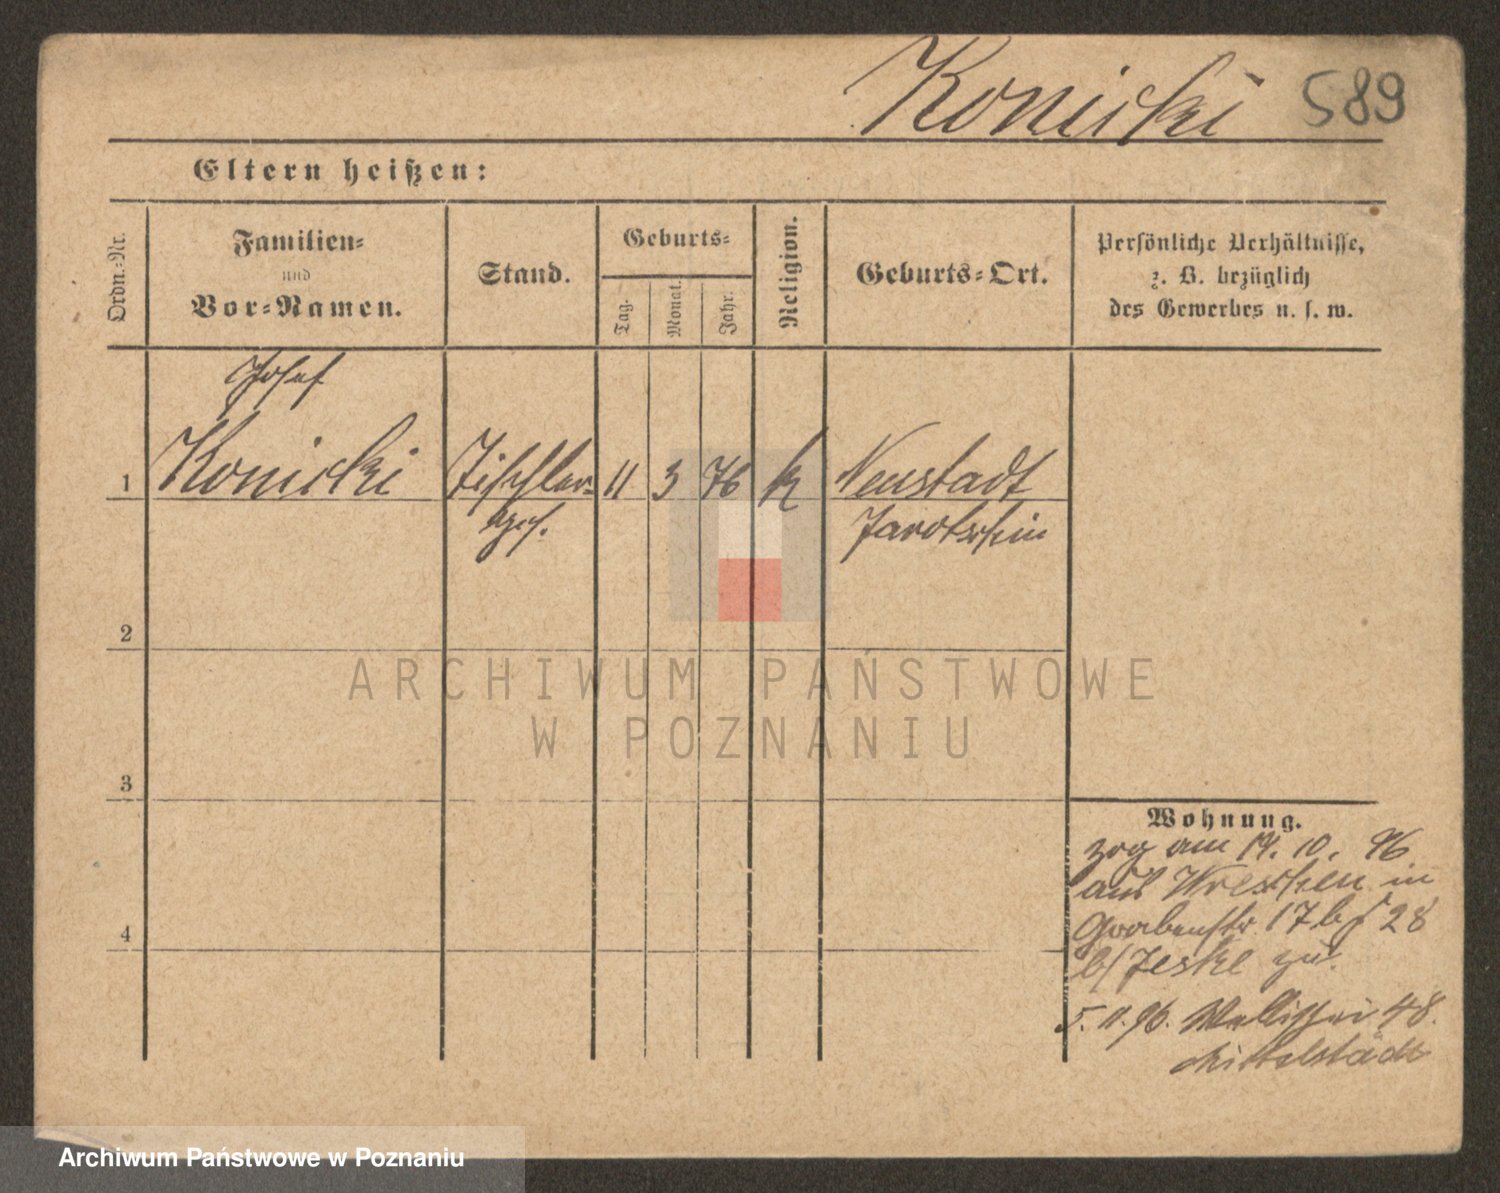 Konicki 589
Eltern heißen:
Ordn.-Nr.
Familien-
und
Vor-Namen.
Stand.
Geburts-
Tag.
Monat.
Jahr.
Religion.
Geburts-Ort.
Persönliche Verhältnisse,
z. B. bezüglich
des Gewerbes u. s. w.
Josef
1 Konicki Tischler- 11 3 76 k Neustadt
Jarotschin
2
3
4
ARCHIWUM PAŃSTWOWE
W POZNANIU
Wohnung.
zog am 14. 10. 96
aus Wreschen in
Grabenstr. 17 28
b/ Jeske zu.
5. 11. 96. Wallischei 48.
Mittelstädt
Archiwum Państwowe w Poznaniu